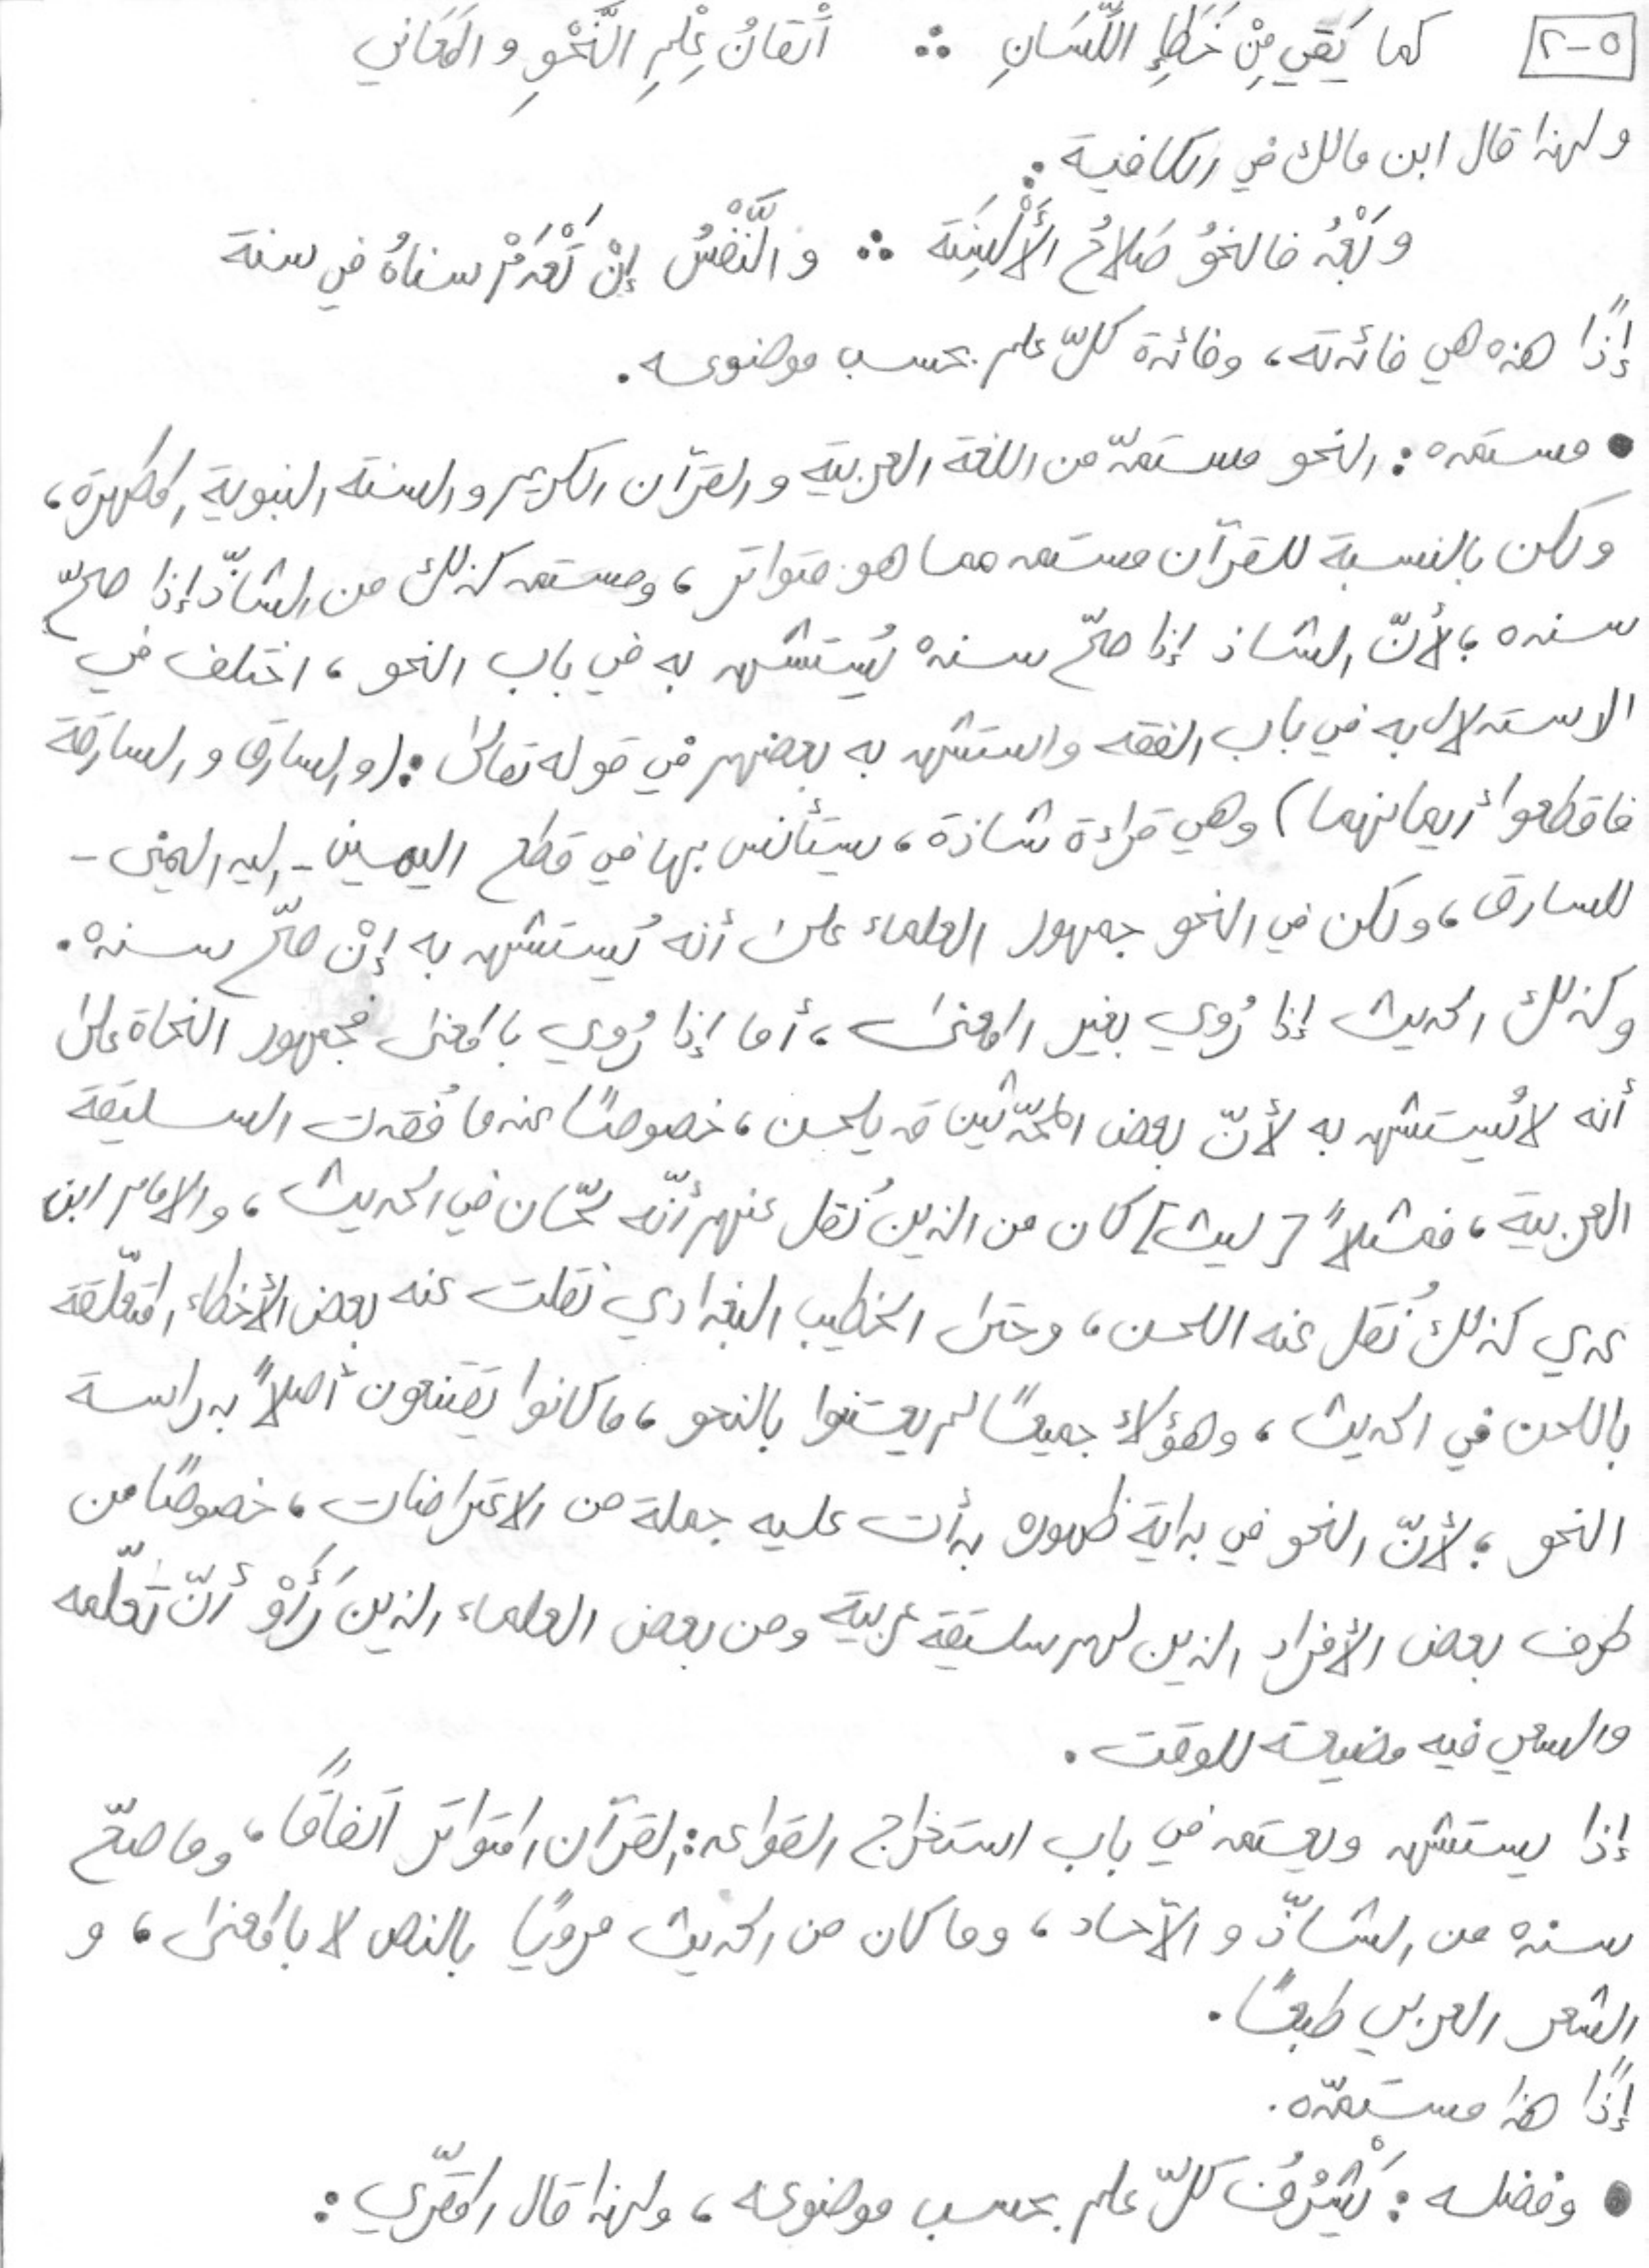 ٥-٢ كما يَقِي مِنْ خَطَإِ اللِّسَانِ ∴ اتْقانُ عِلْمِ النَّحْوِ والمَعَاني
ولهذا قال ابن مالك في الكافية :
وبَعْدُ فالنحوُ صَلاحُ الأَلْسِنَة ∴ والنَّفْسُ إنْ تَعْدَمْ سناهُ في سنة
إذًا هذه هي فائدته، وفائدة كلّ علم بحسب موضوعه .
• مستمده : النحو مستمدّ من اللغة العربية والقرآن الكريم والسنة النبوية المطهرة،
ولكن بالنسبة للقرآن مستمد مما هو متواتر، ومستمد كذلك من الشاذّ إذا صحّ
سنده ؛ لأنّ الشاذ إذا صحّ سندهُ يُستشهد به في باب النحو، اختلف في
الاستدلال به في باب الفقه واستشهد به بعضهم في قوله تعالى : (والسارق والسارقة
فاقطعوا أيمانهما) وهي قراءة شاذة، يستأنس بها في قطع اليمين - اليد اليمنى -
للسارق، ولكن في النحو جمهور العلماء على أنه يُستشهد به إنْ صحّ سندهُ .
وكذلك الحديث إذا رُوي بغير المعنى، أما إذا رُوي بالمعنى فجمهور النحاة على
أنه لا يُستشهد به لأنّ بعض المحدّثين قد يلحن، خصوصًا عندما فُقدت السليقة
العربية، فمثلاً [ليث] كان من الذين نُقل عنهم أنّه لحّان في الحديث، والامام ابن
عدي كذلك نُقل عنه اللحن، وحتى الخطيب البغدادي نقلت عنه بعض الأخطاء المتعلّقة
باللحن في الحديث، وهؤلاء جميعًا لم يعتنوا بالنحو، ما كانوا يقتنعون أصلاً بدراسة
النحو ؛ لأنّ النحو في بداية ظهوره بدأت عليه جملة من الاعتراضات، خصوصًا من
طرف بعض الأفراد الذين لهم سليقة عربية ومن بعض العلماء الذين رَأَوْ أنّ تعلّمه
والسعي فيه مضيعة للوقت .
إذا يستشهد ويعتمد في باب استخراج القواعد : القرآن المتواتر اتفاقًا، وما صحّ
سنده من الشاذّ والآحاد، وما كان من الحديث مرويًا بالنص لا بالمعنى، و
الشعر العربي طبعًا .
إذًا هذا مستمدّه .
• وفضله : يَشْرُفُ كلّ علم بحسب موضوعه، ولهذا قال المقرّي :